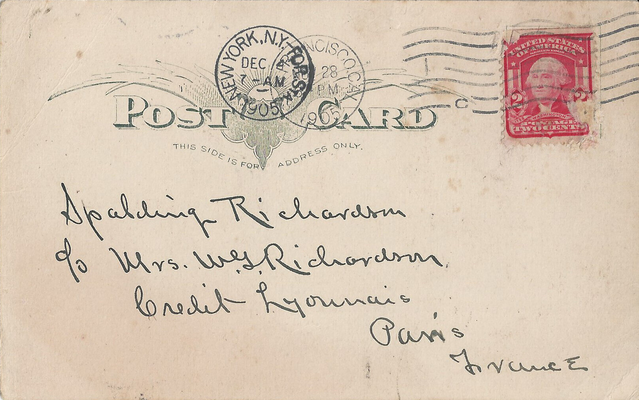 NEW YORK, N.Y.
DEC
7-AM
1905
NCISCO, CA
28
PM
1905
UNITED STATES
OF AMERICA
2 2
POSTAGE
TWO CENTS
POST CARD
THIS SIDE IS FOR ADDRESS ONLY.
Spalding Richardson
c/o Mrs. W.G. Richardson
Credit Lyonnais
Paris
France